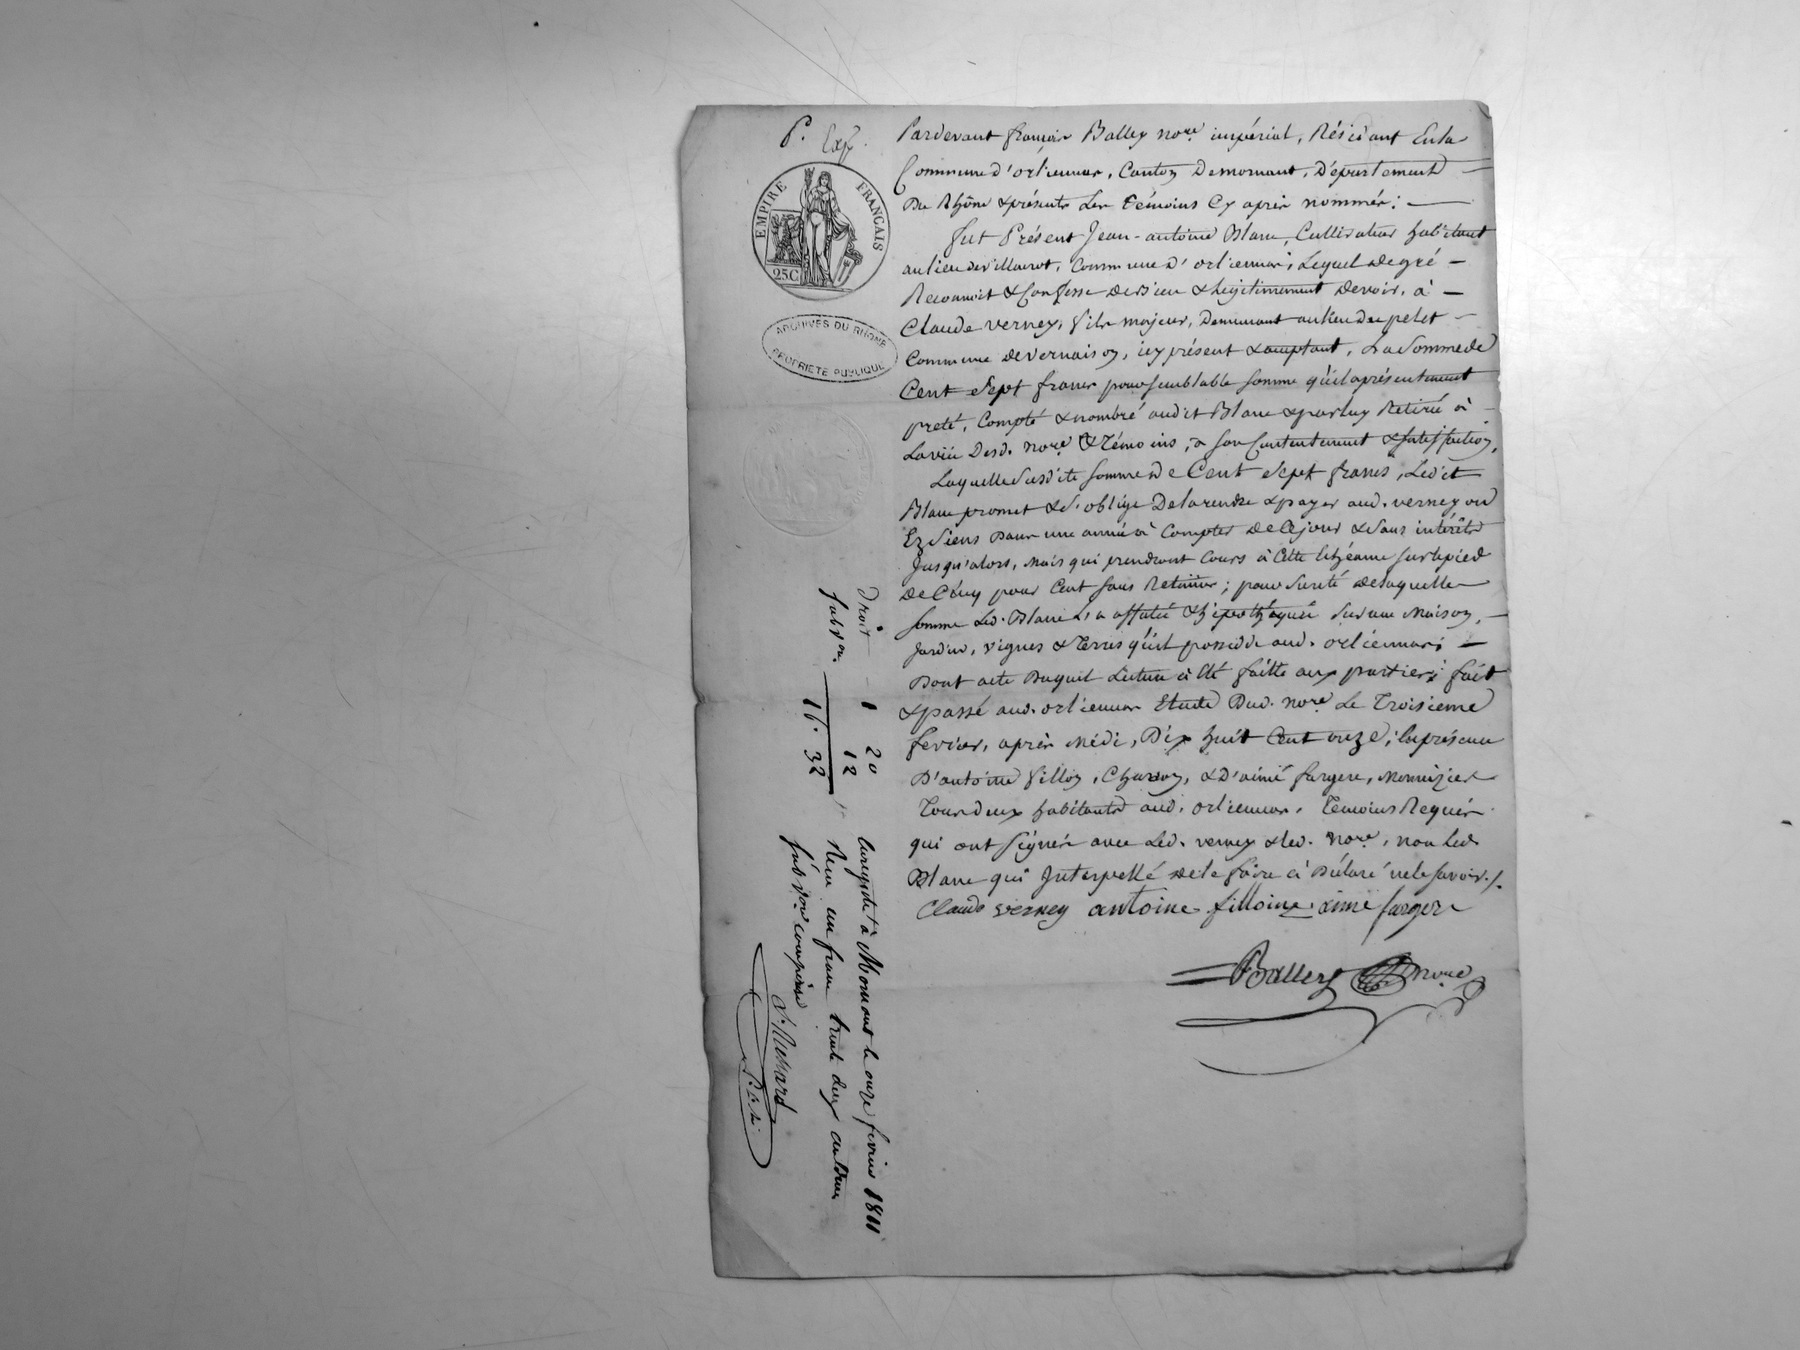 P. Exp.
EMPIRE FRANÇAIS
25C
ARCHIVES DU RHÔNE
PROPRIETE PUBLIQUE
Pardevant françois Balley no.re impérial, Résidant En la
Commune d'orliennas, Canton De mornant, Département
Du Rhône & présents Les témoins Cy après nommés :
fut Présent Jean-antoine Blanc, Cultivateur habitant
au lieu de villouret, Commune d'orliennas, Lequel de gré
Reconnoit & Confesse de bien & Légitimement Devoir, à
Claude verney, fils majeur, Demeurant au lieu du pelet
Commune de vernaison, icy présent & acceptant, La Somme de
Cent Sept francs pour semblable somme qu'il a présentement
preté, Compté & nombré audit Blanc & par luy Retiré à
La viie Desd. no.re & Témoins, à son Contentement & satisfaction,
Laquelle Susdite somme de Cent Sept francs, Ledit
Blanc promet & s'oblige De la rendre & payer aud. verney ou
Ez Siens Dans une année à Compter de Cejour & Sans intérêts
Jusqu'alors, Mais qui prendront Cours à Cette Echéance sur le pied
de Cinq pour Cent sans Retenue ; pour Sureté de laquelle
somme Led. Blanc L'a affecté & hipothéquée Sur une Maison,
Jardin, vignes & Terres qu'il possède aud. orliennas ;
Dont acte Duquel Lecture a été faitte aux parties ; fait
& passé aud. orliennas Etude Dud. no.re Le Troisieme
fevrier, après Médi, Dix huit Cent onze ; En présence
D'antoine fillon, Charron, & D'aimé fargere, Menuizier
Tous deux habitants aud. orliennas, Temoins Requis
qui ont signés avec Led. verney & led. no.re, non Led.
Blanc qui Interpellé de le faire a Déclaré ne le Savoir ./.
Claude verney antoine fillon aimé fargere
Balley no.re
Droit 1 20
subv.on 12
1f. 32
Enregistré à Mornant le onze fevrier 1811
Recu un franc trente deux centimes
subv.on comprise